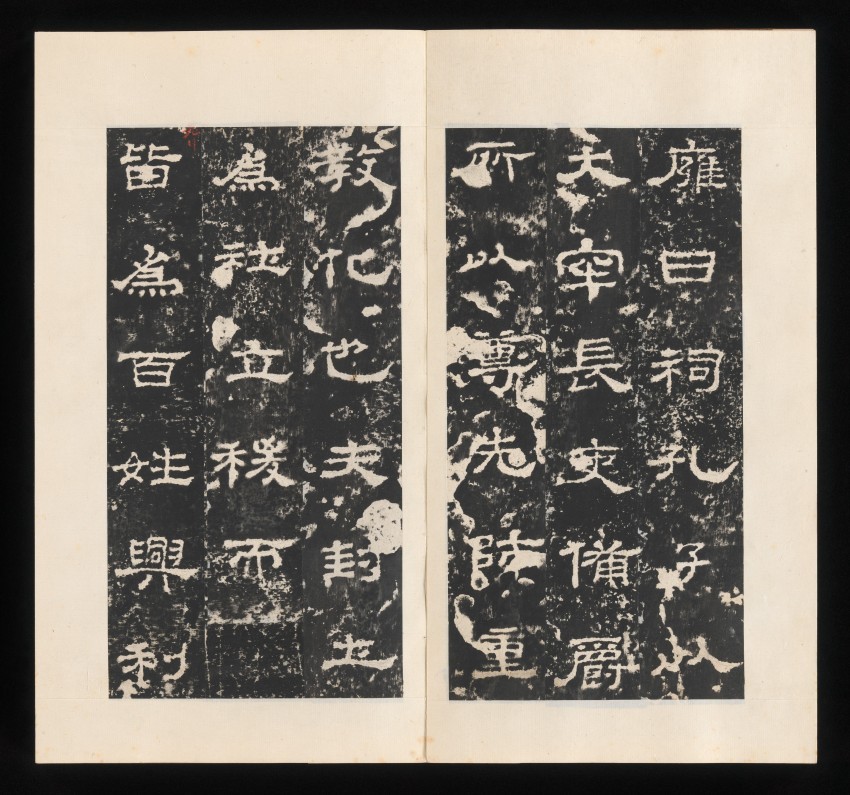 雍日祠孔子以
大牢長吏備爵
所以尊先師重
教化也夫封土
為社立稷而
皆為百姓興利